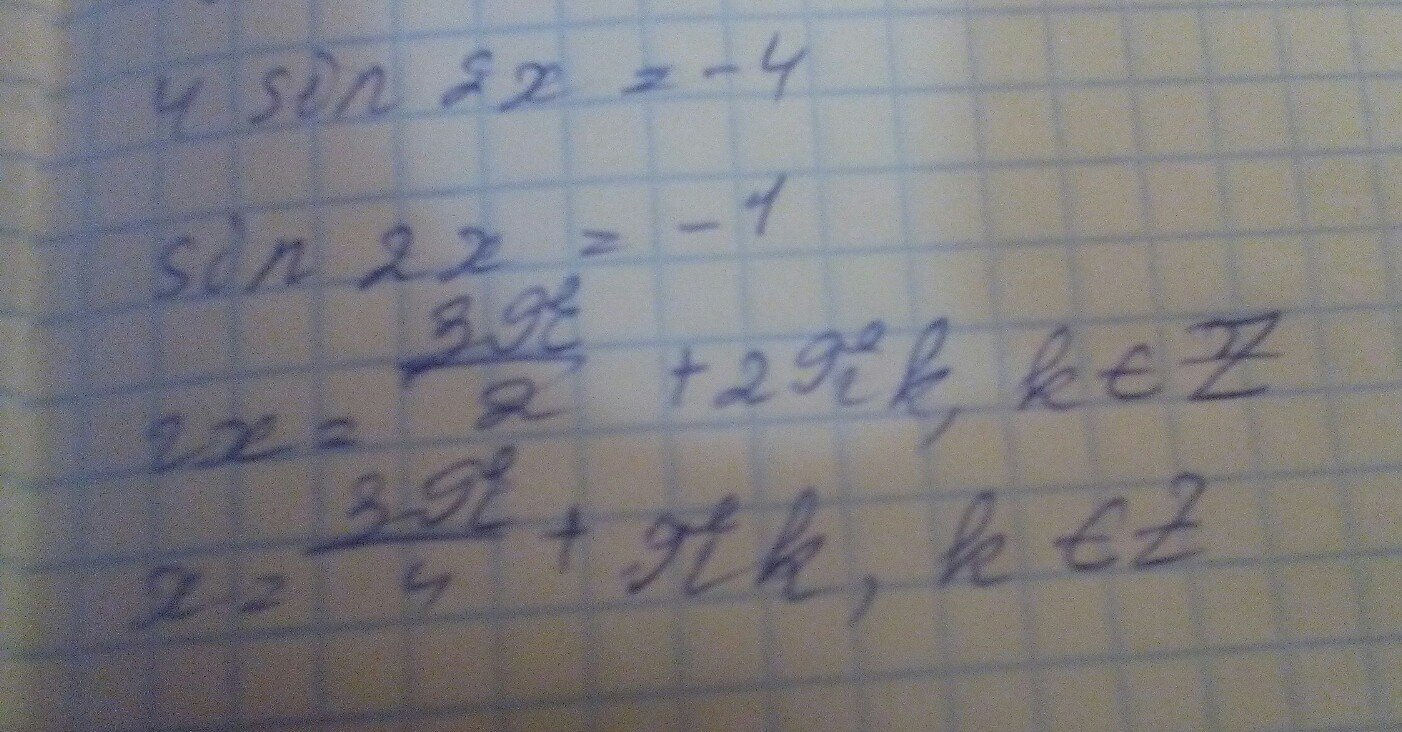 4 sin 2x = -4
sin 2x = -1
2x = 3π/2 + 2πk, k ∈ Z
x = 3π/4 + πk, k ∈ Z